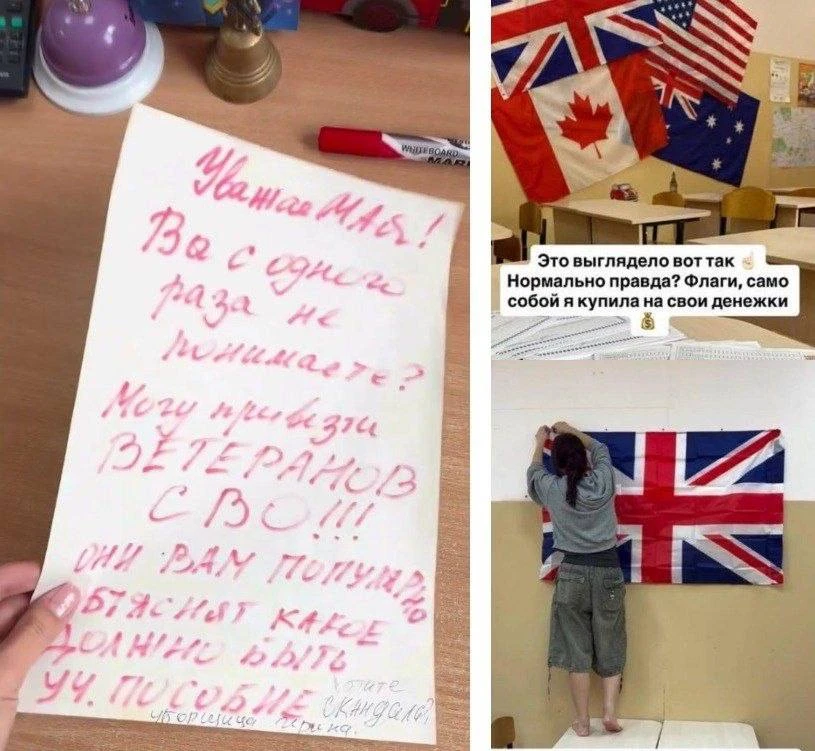 УважаеМАя!
Вы с одного
раза не
понимаете?
Могу привезти
ВЕТЕРАНОВ
СВО!!!
ОНИ ВАМ ПОПУЛЯРНО
ОБЪЯСНЯТ КАКОЕ
ДОЛЖНО БЫТЬ
УЧ. ПОСОБИЕ
Хотите
СКАНДАЛА?
уборщица
WHITEBOARD
Это выглядело вот так ☝🏻
Нормально правда? Флаги, само
собой я купила на свои денежки
💰